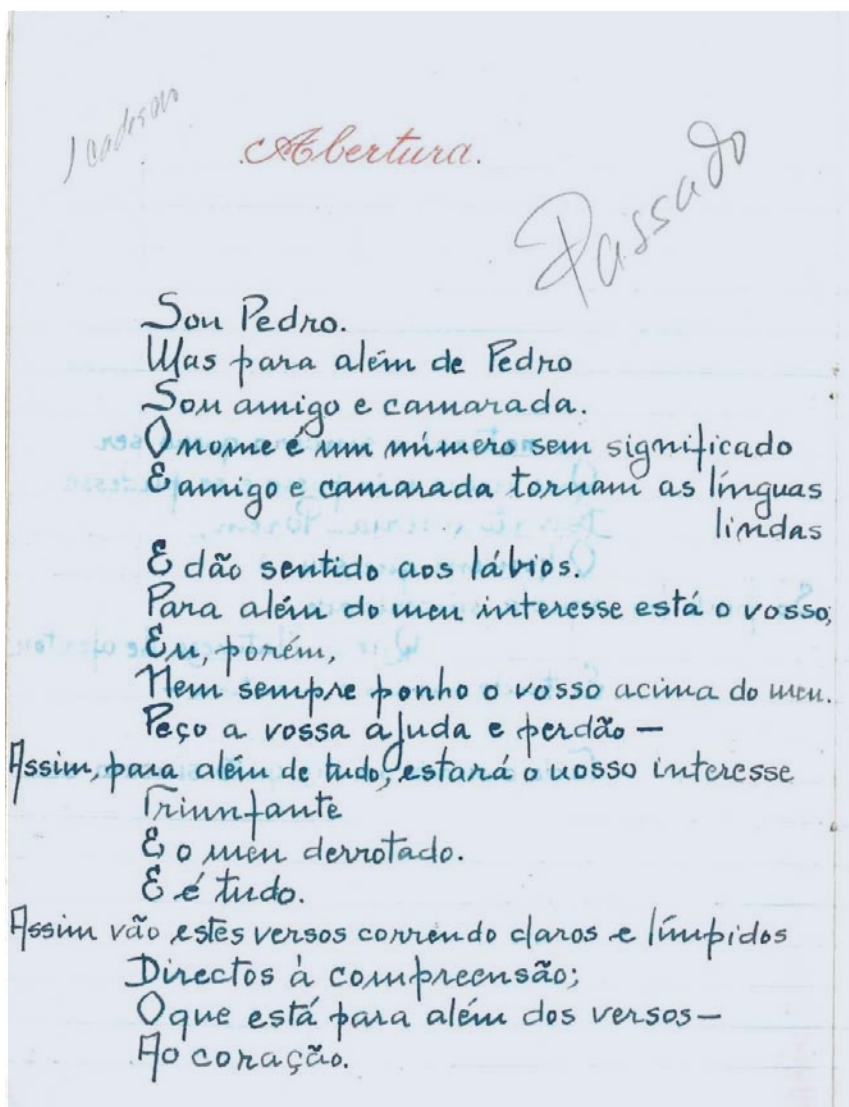 1 caderno
Abertura.
Passado
Sou Pedro.
Mas para além de Pedro
Sou amigo e camarada.
O nome é um número sem significado
E amigo e camarada tornam as línguas
lindas
E dão sentido aos lábios.
Para além do meu interesse está o vosso,
Eu, porém,
Nem sempre ponho o vosso acima do meu.
Peço a vossa ajuda e perdão —
Assim, para além de tudo, estará o nosso interesse
Triunfante
E o meu derrotado.
E é tudo.
Assim vão estes versos correndo claros e límpidos
Directos à compreensão;
O que está para além dos versos —
Ao coração.